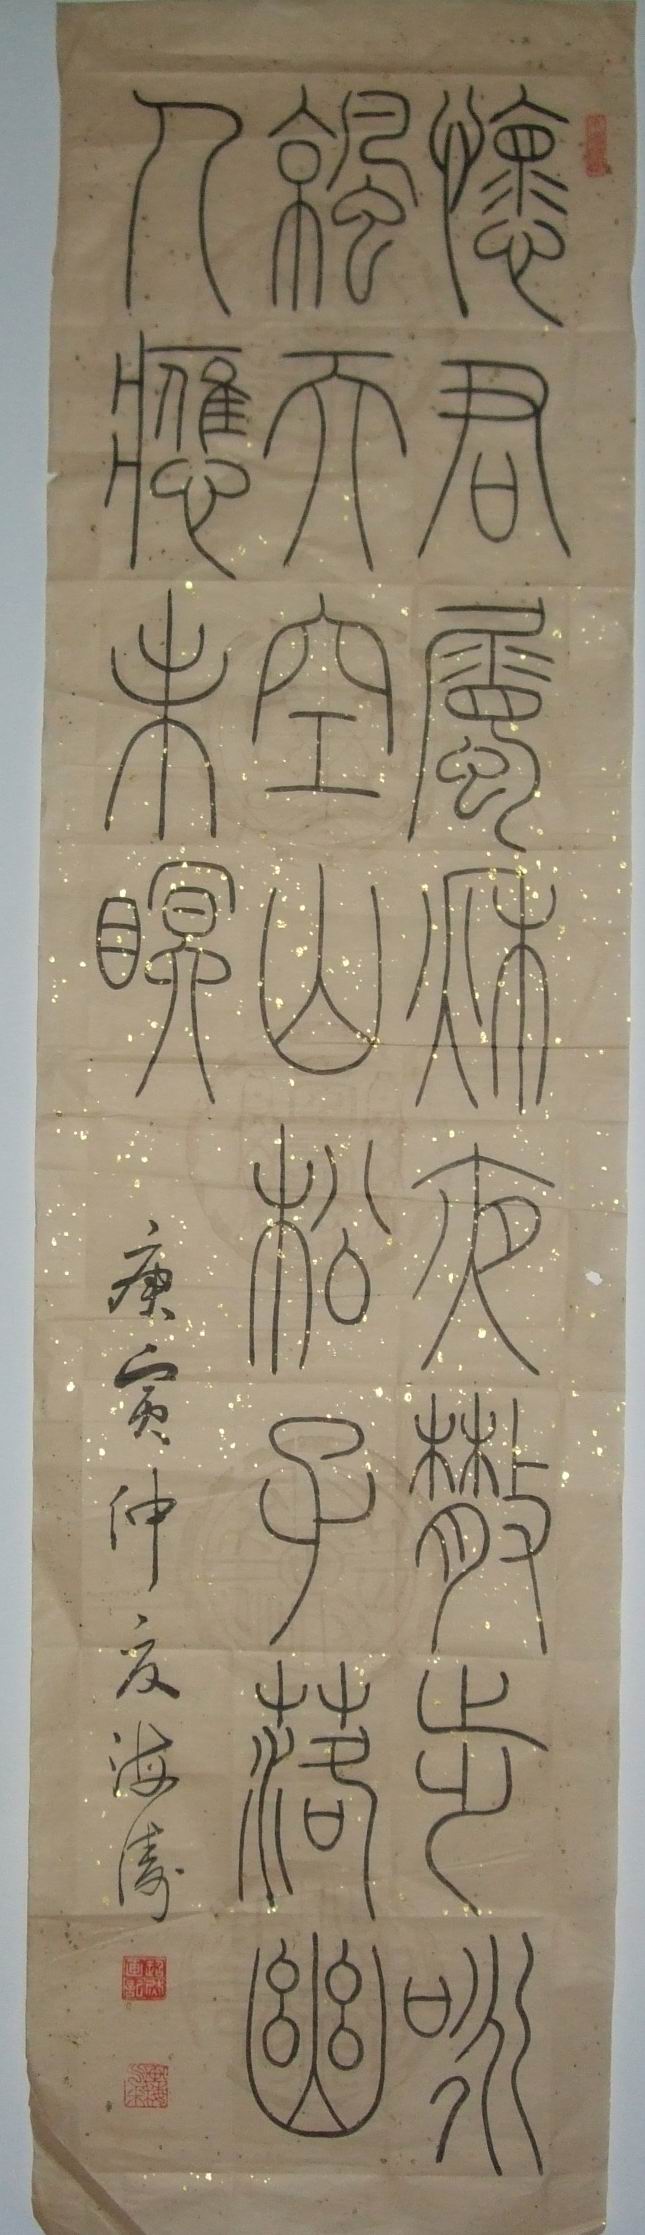 懷君屬秋夜散步咏
涼天空山松子落幽
人應未瞑
庚寅仲夏海濤